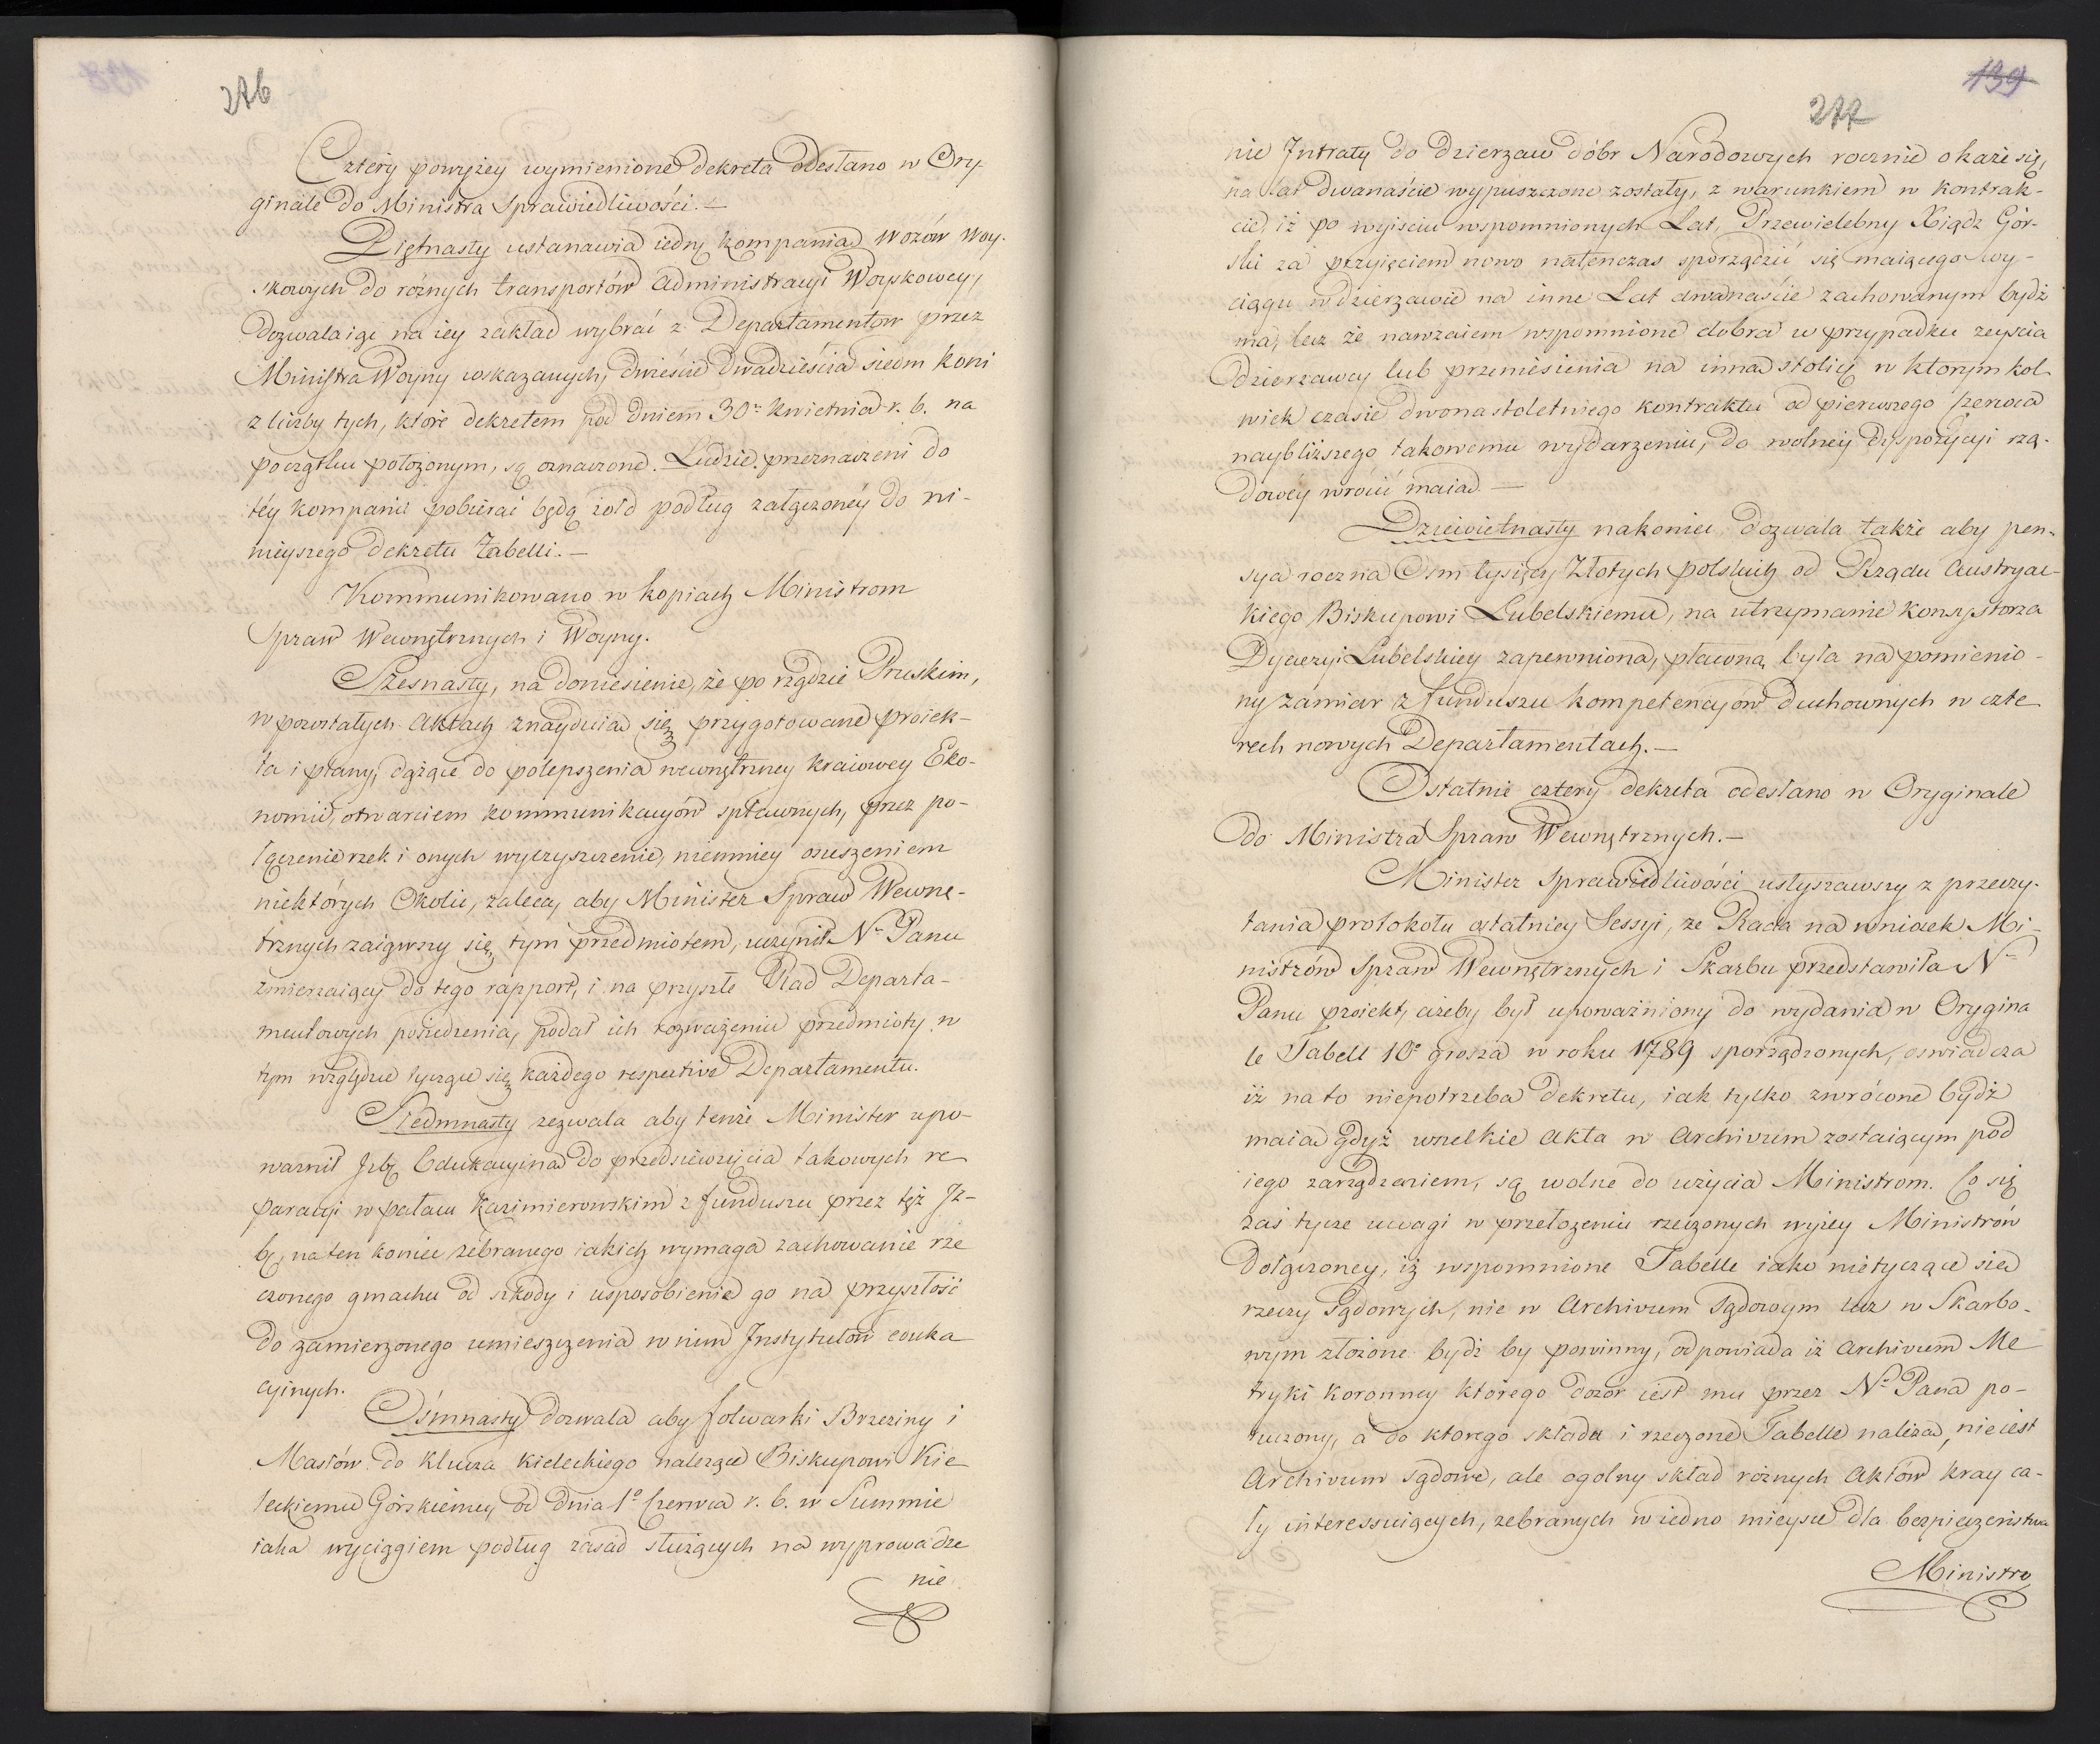 276
Cztery powyżey wymienione dekreta odesłano w Ory-
ginale do Ministra Sprawiedliwości. —
Piętnasty ustanawia iedną kompanią wozów woy-
skowych do różnych transportów Administracyi Woyskowey,
dozwalaiąc na iey zakład wybrać z Departamentów przez
Ministra Woyny wskazanych, dwieście dwadzieścia siedm koni
z liczby tych, które dekretem pod dniem 30. kwietnia r. b. na
początku położonym, są oznaczone. Ludzie przeznaczeni do
téy kompanii pobierać będą żołd podług załączonéy do ni-
nieyszego dekretu Tabelli. —
Kommunikowano w kopiach Ministrom
Spraw Wewnętrznych i Woyny.
Szesnasty, na doniesienie, że po rządzie Pruskim,
w pozostałych aktach znayduią się przygotowane proiek-
ta i plany, dążące do polepszenia wewnętrzney kraiowey Eko-
nomii, otwarciem kommunikacyów spławnych, przez po-
łączenie rzek i onych wyczyszczenie, niemniey osuszeniem
niektórych Okolic, zaleca, aby Minister Spraw Wewnę-
trznych zaiąwszy się tym przedmiotem, uczynił N. Panu
zmierzaiący do tego rapport, i na przyszłe Rad Departa-
mentowych posiedzenia, podał ich rozważeniu przedmioty w
tym względzie tyczące się każdego respective Departamentu.
Siedmnasty zezwala aby tenże Minister upo-
ważnił Izbę Edukacyiną do przedsięwzięcia takowych re
paracyi w pałacu Kazimierowskim z funduszu przez tęż Iz-
bę na ten koniec zebranego iakich wymaga zachowanie rze
czonego gmachu od szkody i usposobienie go na przyszłość
do zamierzonego umieszczenia w nim Instytutów eduka
cyinych.
Ośmnasty dozwala aby folwarki Brzeziny i
Masłów do klucza kieleckiego należące Biskupowi Kie
leckiemu Górskiemu, od dnia 1° Czerwca r. b. w Summie
iaka wyciągiem podług zasad służących na wyprowadze
nie
139
277
nie Intraty do dzierzaw dóbr Narodowych rocznie okaże się,
na lat dwanaście wypuszczone zostały, z warunkiem w kontrak-
cie, iż po wyiściu wspomnionych Lat, Przewielebny Xiądz Gór-
ski za przyięciem nowo natenczas sporządzić się maiącego wy-
ciągu w dzierzawie na inne Lat dwanaście zachowanym bydź
ma, lecz że nawzaiem wspomnione dobra w przypadku zeyścia
Dzierzawcy lub przeniesienia na inną stolicę w którym kol
wiek czasie dwonastoletniego kontraktu od pierwszego Czerwca
naybliższego takowemu wydarzeniu, do wolnéy dyspozycyi rzą-
dowéy wrócić maią. —
Dziewietnasty nakoniec dozwala także aby pen-
sya roczna Osm tysięcy Złotych polskich od Rządu Austryac-
kiego Biskupowi Lubelskiemu, na utrzymanie konsystorza
Dyacezyi Lubelskiey zapewniona, płacona była na pomienio-
ny zamiar z funduszu kompetencyów duchownych w czte
rech nowych Departamentach. —
Ostatnie cztery dekreta odesłano w Oryginale
do Ministra Spraw Wewnętrznych. —
Minister Sprawiedliwości usłyszawszy z przeczy-
tania protokołu ostatniey Sessyi, że Rada na wniosek Mi-
nistrów Spraw Wewnętrznych i Skarbu przedstawiła N.
Panu proiekt, ażeby był upoważniony do wydania w Orygina
le Tabell 10° grosza w roku 1789 sporządzonych, oswiadcza
iż na to niepotrzeba dekretu, iak tylko zwrócone bydź
maią gdyż wszelkie akta w Archivum zostaiącym pod
iego zarządzeniem, są wolne do użycia Ministrom. Co się
zaś tycze uwagi w przełożeniu rzeczonych wyżey Ministrów
dołączoney, iż wspomnione Tabelle iako nietyczące sie
rzeczy Sądowych, nie w Archivum Sądowym lecz w Skarbo-
wym złożone bydź by powinny, odpowiada iż Archivum Me
tryki Koronney którego dozór iest mu przez N. Pana po-
ruczony, a do ktorego składu i rzeczone Tabelle należą, nie iest
Archivum sądowe, ale ogolny skład róznych Aktów kray ca-
ły interessuiących, zebranych w iedno mieysce dla bezpieczeństwa
Ministro